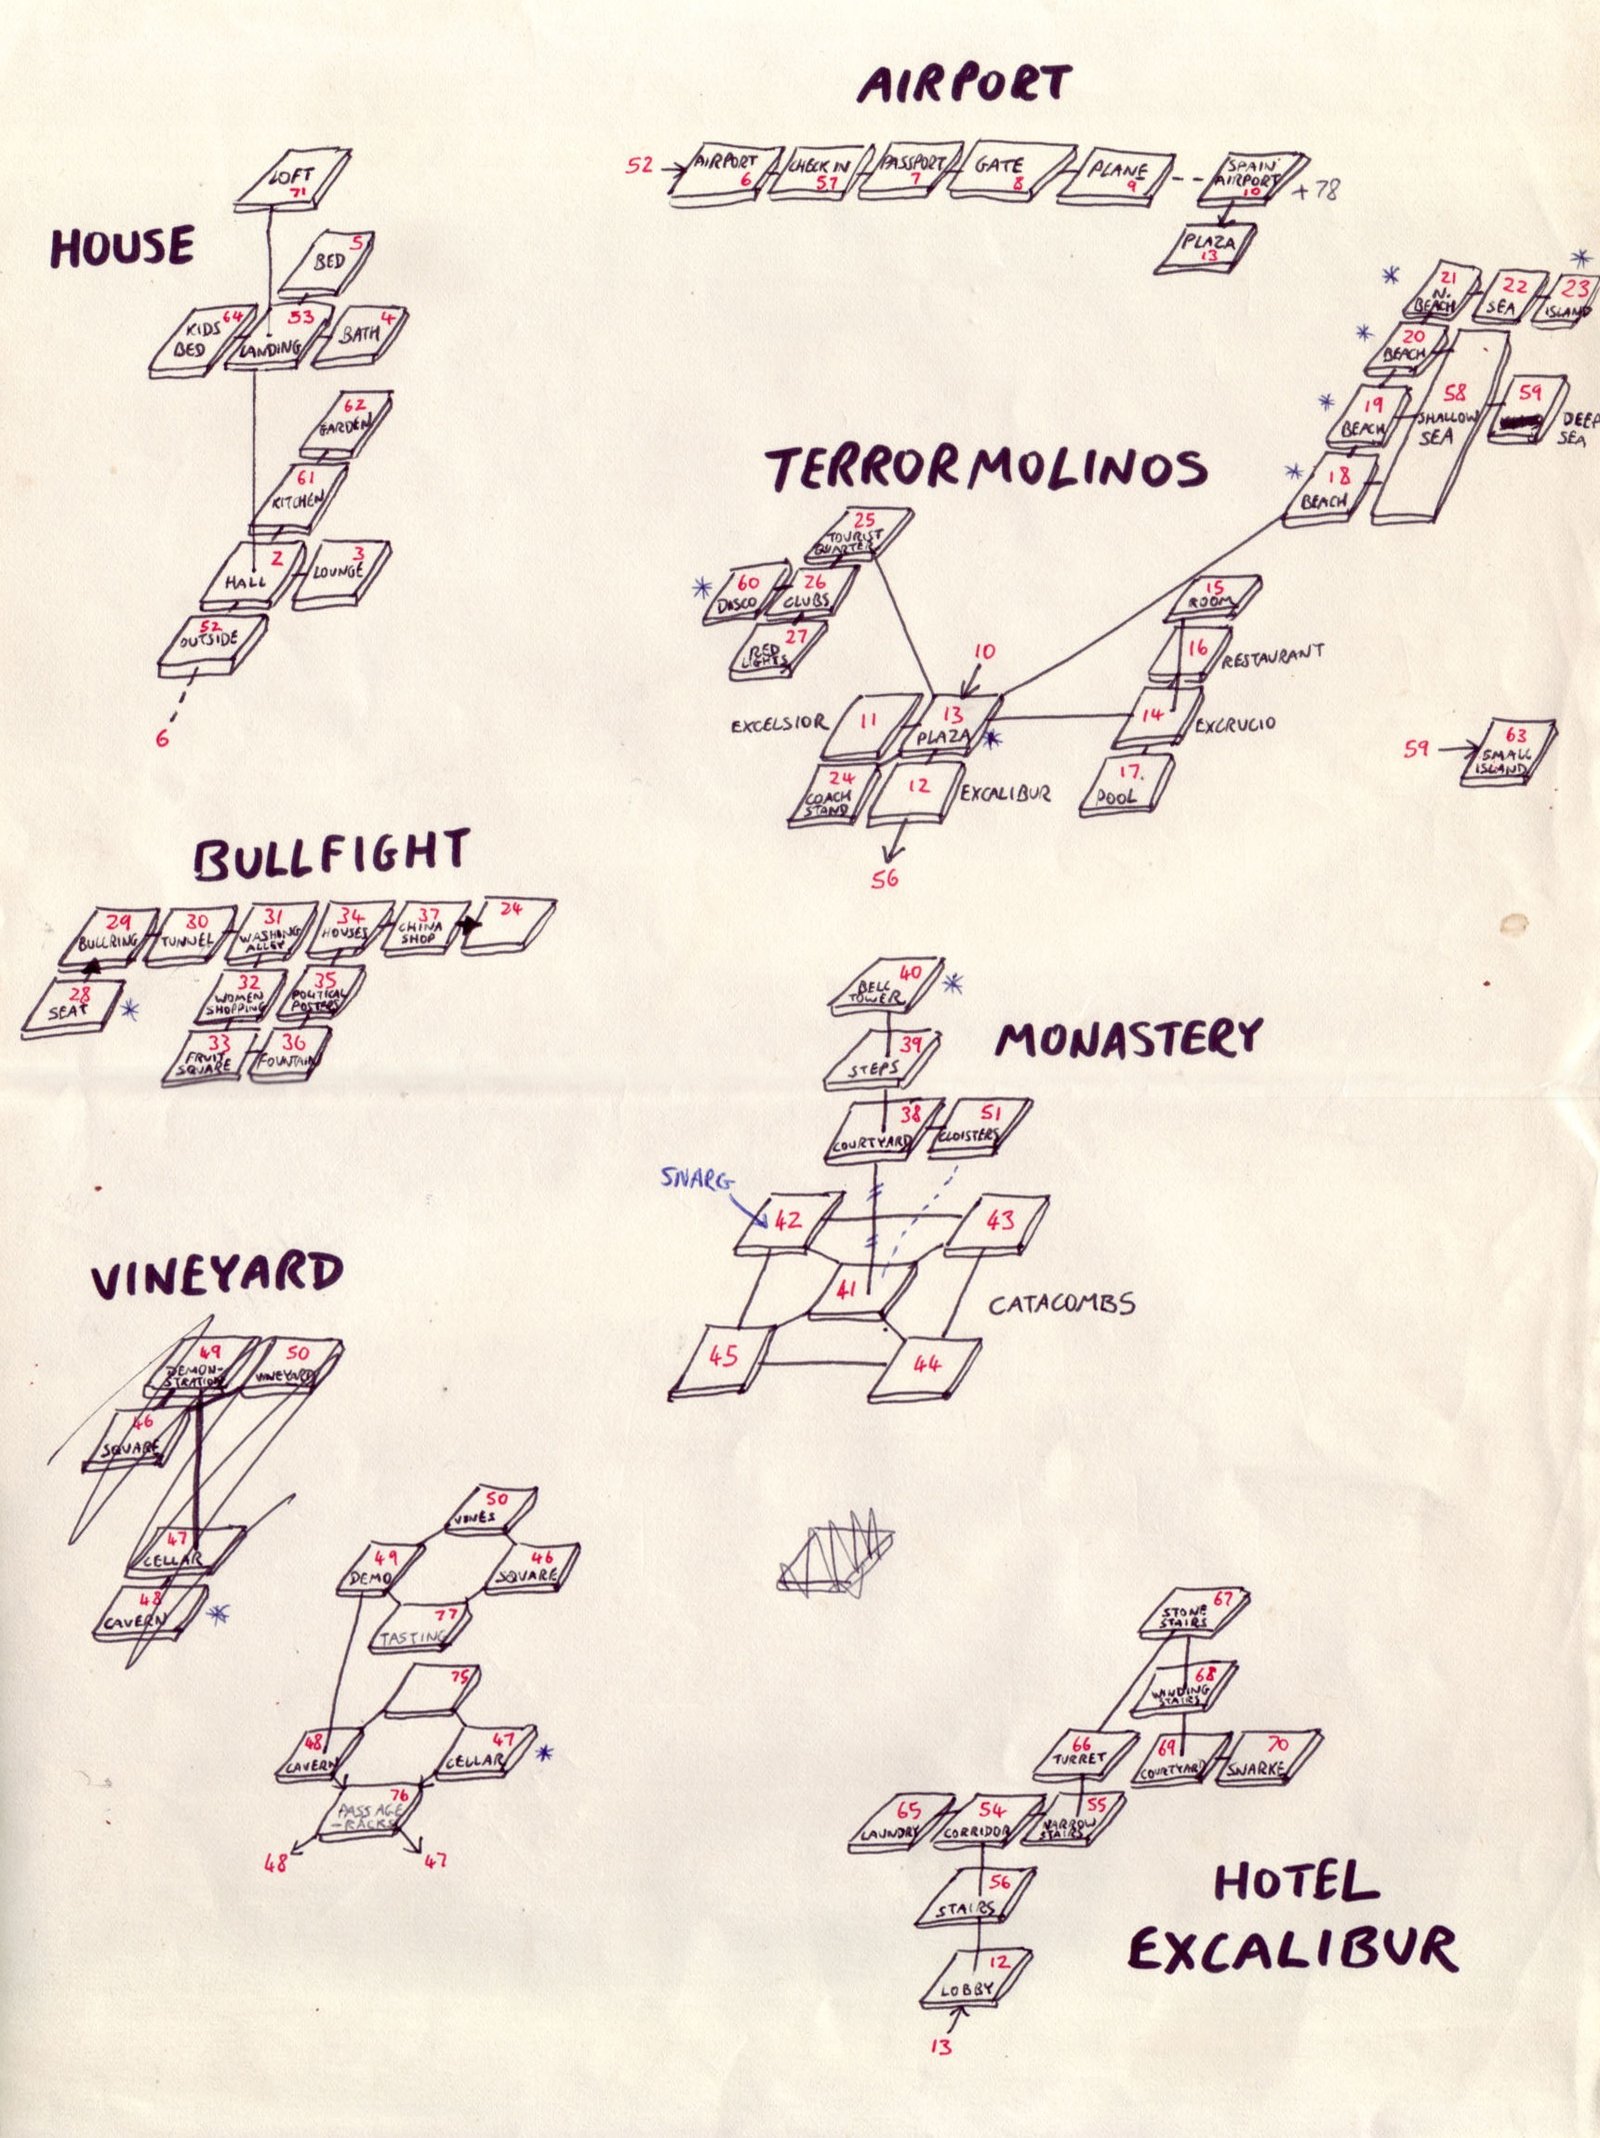 AIRPORT
52
AIRPORT
6
CHECK IN
57
PASSPORT
7
GATE
8
PLANE
9
SPAIN
AIRPORT
10
+78
PLAZA
13
HOUSE
LOFT
71
5
BED
64
KIDS
BED
53
LANDING
4
BATH
62
GARDEN
61
KITCHEN
2
HALL
3
LOUNGE
52
OUTSIDE
6
TERRORMOLINOS
21
N.
BEACH
*
22
SEA
23
ISLAND
*
20
BEACH
*
19
BEACH
*
18
BEACH
*
58
SHALLOW
SEA
59
DEEP
SEA
25
TOURIST
QUARTER
*
60
DISCO
26
CLUBS
27
RED
LIGHTS
10
15
ROOM
16
RESTAURANT
EXCELSIOR
11
13
PLAZA
*
14
EXCRUCIO
24
COACH
STAND
12
EXCALIBUR
17.
POOL
56
59
63
SMALL
ISLAND
BULLFIGHT
29
BULLRING
30
TUNNEL
31
WASHING
ALLEY
34
HOUSES
37
CHINA
SHOP
24
28
SEAT
*
32
WOMEN
SHOPPING
35
POLITICAL
POSTERS
33
FRUIT
SQUARE
36
FOUNTAIN
MONASTERY
40
BELL
TOWER
*
39
STEPS
38
COURTYARD
51
CLOISTERS
SNARG
42
43
41
CATACOMBS
45
44
VINEYARD
49
DEMON-
STRATION
50
VINEYARD
46
SQUARE
47
CELLAR
48
CAVERN
*
50
VINES
49
DEMO
46
SQUARE
77
TASTING
75
48
CAVERN
47
CELLAR
*
76
PASSAGE
-RACKS
48
47
HOTEL
EXCALIBUR
67
STONE
STAIRS
68
WINDING
STAIRS
66
TURRET
69
COURTYARD
70
SNARKE
65
LAUNDRY
54
CORRIDOR
55
NARROW
STAIRS
56
STAIRS
12
LOBBY
13